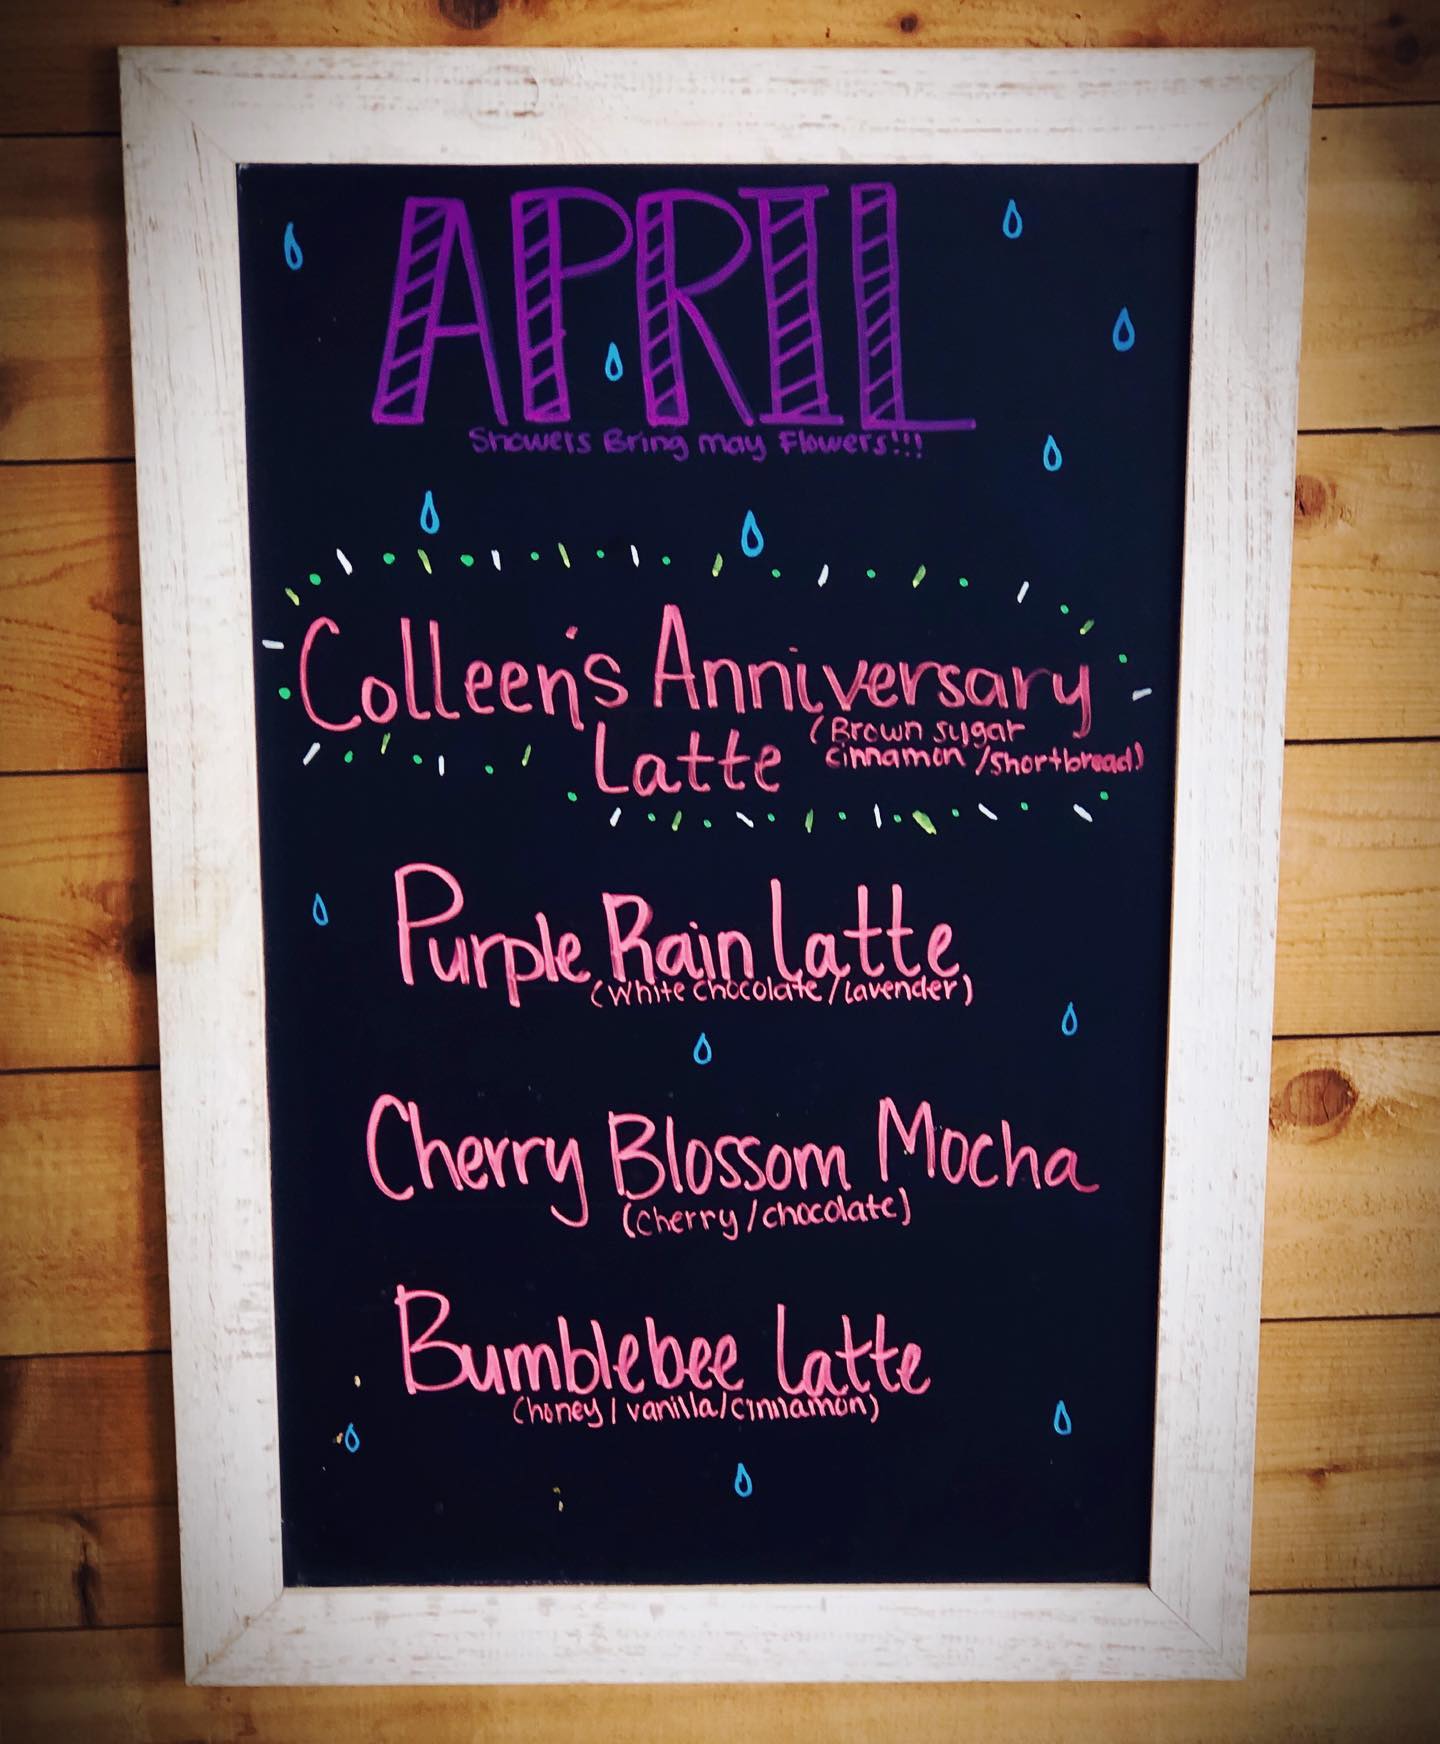 APRIL
Showers Bring may Flowers!!!
Colleen's Anniversary
Latte
(Brown sugar
cinnamon /shortbread)
Purple Rain Latte
(White chocolate/lavender)
Cherry Blossom Mocha
(cherry/chocolate)
Bumblebee Latte
(honey/vanilla/cinnamon)